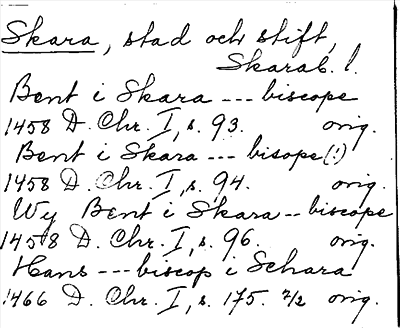 Skara, stad och stift,
Skarab. l.
Bent i Skara --- biscope
1458 D. Chr. I, s. 93. orig.
Bent i Skara --- bisope (!)
1458 D. Chr. I, s. 94. orig.
Wy Bent i Skara -- biscope
1458 D. Chr. I, s. 96. orig.
Hans --- biscop i Schara
1466 D. Chr. I, s. 175. 2/2 orig.